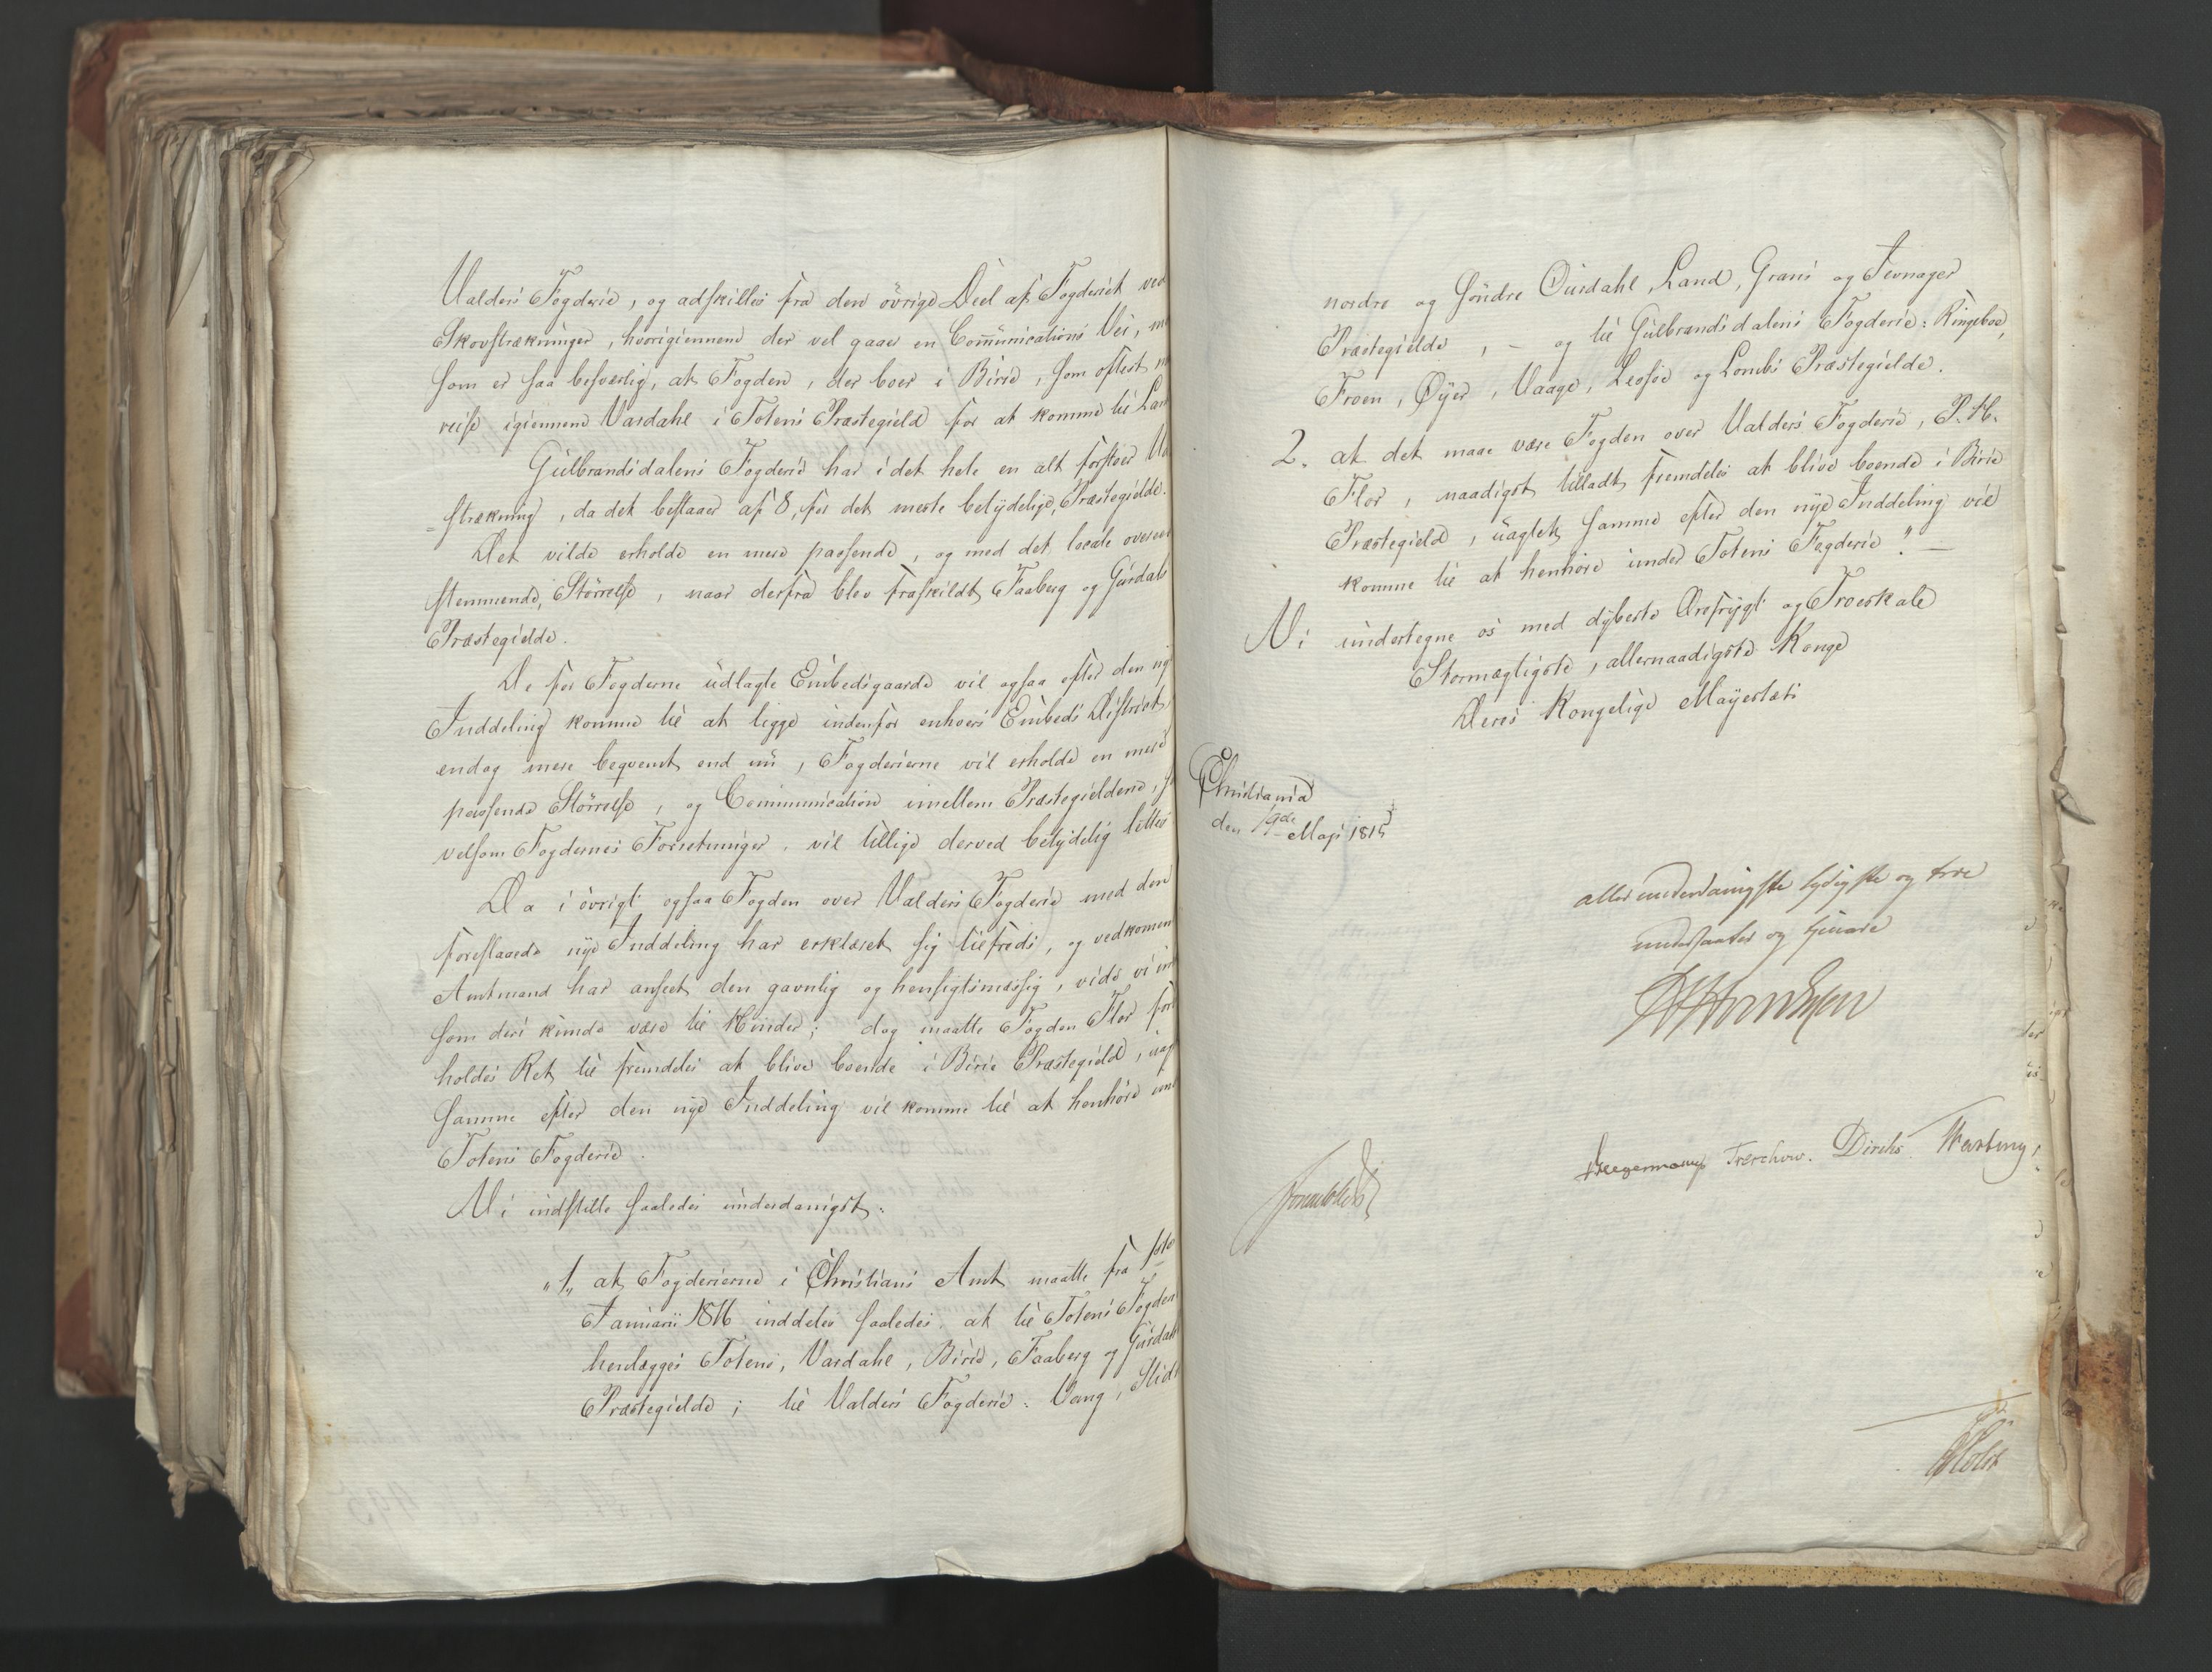 Valders Fogderie, og adskilles fra den övrige Deel af Fogderiet ved
Skovstrækninger, hvorigiennem der vel gaaer en Communications Vei,
som er saa besværlig, at Fogden, der boer i Birid, som oftest
reise igiennem Vardahl i Totens Præstegield for at komme til Land
Gulbrandsdalens Fogderie har i det hele en alt for stoer
strækning, da det bestaaer af 8, for det meste betydelige, Præstegielde.
Det vilde erholde en mere passende, og med det locale overeens
stemmende, Störrelse, naar derfra blev fraskildt Faaberg og Gusdals
Præstegielde.
De for Fogderne udlagte Embedsgaarde vil ogsaa efter den nye
Inddeling komme til at ligge indenfor enhvers Embeds District
endog mere beqvemt end nu, Fogderierne vil erholde en mere
passende Störrelse, og Communication imellem Præstegieldene,
velsom Fogdernes Forretninger, vil tillige derved betydelig lettes
Da i övrigt ogsaa Fogden over Valders Fogderie med den
foreslaaede nye Inddeling har erklæret sig tilfreds, og vedkommen
Amtmand har anseet den gavnlig og hensigtsmæssig, vide vi
som deri kunde være til Hinder; dog maatte Fogden Flor
holdes Ret til fremdeles at blive boende i Birie Præstegield,
samme efter den nye Inddeling vil komme til at henhöre
Totens Fogderie.
Vi indstille saaledes underdanigst:
"1, at Fogderierne i Christians Amt maatte fra 1ste
Januarii 1816 inddeles saaledes: at til Totens Fogderi
henlægges Totens, Vardahl, Birid, Faaberg og Gusdals
Præstegielde; til Valders Fogderie: Vang, Slidr
nordre og söndre Ourdahl, Land, Grans og Jevnager
Præstegielde, – og til Gulbrandsdalens Fogderie: Ringeboe,
Froen, Øyer, Vaage, Lessöe og Lombs Præstegielde.
2. at det maae være Fogden over Valders Fogderie, P. H.
Flor, naadigst tilladt fremdeles at blive boende i Birie
Præstegield, uagtet samme efter den nye Inddeling vil
komme til at henhöre under Totens Fogderie". –
Vi undertegne os med dybeste Ærefrygt og Troeskab
Stormægtigste, allernaadigste Konge
Deres Kongelige Mayestæts
Christiania
den 19de Maji 1815
allerunderdanigste lydigste og troe
undersaatter og tienere
Hegermann Treschow. Diriks
Holst